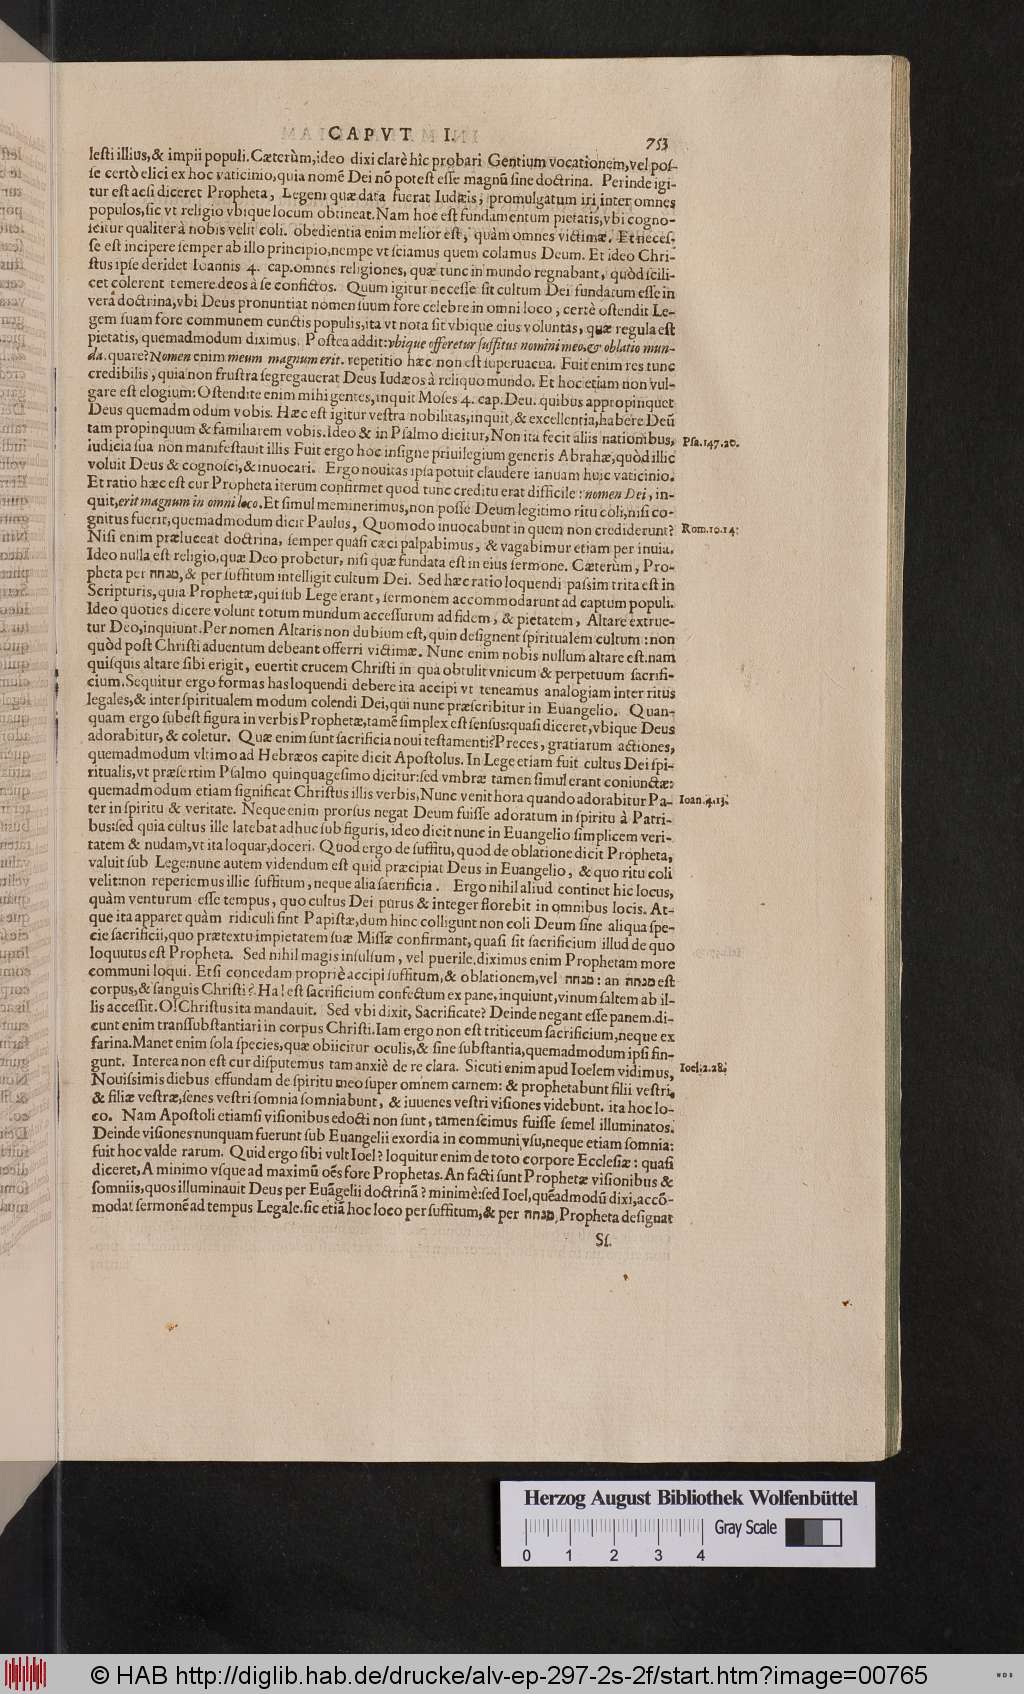 CAPVT I. 753
lesti illius, & impii populi. Cæterùm, ideo dixi clarè hîc probari Gentium vocationem, vel pos-
se certò elici ex hoc vaticinio, quia nomē Dei nō potest esse magnū sine doctrina. Perinde igi-
tur est acsi diceret Propheta, Legem quæ data fuerat Iudæis, promulgatum iri inter omnes
populos, sic vt religio vbique locum obtineat. Nam hoc est fundamentum pietatis, vbi cogno-
scitur qualiter à nobis velit coli. obedientia enim melior est, quàm omnes victimæ. Et neces-
se est incipere semper ab illo principio, nempe vt sciamus quem colamus Deum. Et ideo Chri-
stus ipse deridet Ioannis 4. cap. omnes religiones, quæ tunc in mundo regnabant, quòd scili-
cet colerent temere deos à se confictos. Quum igitur necesse sit cultum Dei fundatum esse in
vera doctrina, vbi Deus pronuntiat nomen suum fore celebre in omni loco, certè ostendit Le-
gem suam fore communem cunctis populis, ita vt nota sit vbique eius voluntas, quæ regula est
pietatis, quemadmodum diximus. Postea addit: vbique offeretur suffitus nomini meo, & oblatio mun-
da. quare? Nomen enim meum magnum erit. repetitio hæc non est superuacua. Fuit enim res tunc
credibilis, quia non frustra segregauerat Deus Iudæos à reliquo mundo. Et hoc etiam non vul-
gare est elogium: Ostendite enim mihi gentes, inquit Moses 4. cap. Deu. quibus appropinquet
Deus quemadmodum vobis. Hæc est igitur vestra nobilitas, inquit, & excellentia, habere Deū
tam propinquum & familiarem vobis. Ideo & in Psalmo dicitur, Non ita fecit aliis nationibus, Psa. 147. 20.
iudicia sua non manifestauit illis Fuit ergo hoc insigne priuilegium generis Abrahæ, quòd illic
voluit Deus & cognosci, & inuocari. Ergo nouitas ipsa potuit claudere ianuam huic vaticinio.
Et ratio hæc est cur Propheta iterum confirmet quod tunc creditu erat difficile: nomen Dei, in-
quit, erit magnum in omni loco. Et simul meminerimus, non posse Deum legitimo ritu coli, nisi co-
gnitus fuerit, quemadmodum dicit Paulus, Quomodo inuocabunt in quem non crediderunt? Rom. 10. 14.
Nisi enim præluceat doctrina, semper quasi cæci palpabimus, & vagabimur etiam per inuia.
Ideo nulla est religio, quæ Deo probetur, nisi quæ fundata est in eius sermone. Cæterùm, Pro-
pheta per מנחה, & per suffitum intelligit cultum Dei. Sed hæc ratio loquendi passim trita est in
Scripturis, quia Prophetæ, qui sub Lege erant, sermonem accommodarunt ad captum populi.
Ideo quoties dicere volunt totum mundum accessurum ad fidem, & pietatem, Altare extrue-
tur Deo, inquiunt. Per nomen Altaris non dubium est, quin designent spiritualem cultum: non
quòd post Christi aduentum debeant offerri victimæ. Nunc enim nobis nullum altare est. nam
quisquis altare sibi erigit, euertit crucem Christi in qua obtulit vnicum & perpetuum sacrifi-
cium. Sequitur ergo formas has loquendi debere ita accipi vt teneamus analogiam inter ritus
legales, & inter spiritualem modum colendi Dei, qui nunc præscribitur in Euangelio. Quan-
quam ergo subest figura in verbis Prophetæ, tamē simplex est sensus: quasi diceret, vbique Deus
adorabitur, & coletur. Quæ enim sunt sacrificia noui testamenti? Preces, gratiarum actiones,
quemadmodum vltimo ad Hebræos capite dicit Apostolus. In Lege etiam fuit cultus Dei spi-
ritualis, vt præsertim Psalmo quinquagesimo dicitur: sed vmbræ tamen simul erant coniunctæ:
quemadmodum etiam significat Christus illis verbis, Nunc venit hora quando adorabitur Pa- Ioan. 4. 23.
ter in spiritu & veritate. Neque enim prorsus negat Deum fuisse adoratum in spiritu à Patri-
bus: sed quia cultus ille latebat adhuc sub figuris, ideo dicit nunc in Euangelio simplicem veri-
tatem & nudam, vt ita loquar, doceri. Quod ergo de suffitu, quod de oblatione dicit Propheta,
valuit sub Lege: nunc autem videndum est quid præcipiat Deus in Euangelio, & quo ritu coli
velit: non reperiemus illic suffitum, neque alia sacrificia. Ergo nihil aliud continet hic locus,
quàm venturum esse tempus, quo cultus Dei purus & integer florebit in omnibus locis. At-
que ita apparet quàm ridiculi sint Papistæ, dum hinc colligunt non coli Deum sine aliqua spe-
cie sacrificii, quo prætextu impietatem suæ Missæ confirmant, quasi sit sacrificium illud de quo
loquutus est Propheta. Sed nihil magis insulsum, vel puerile, diximus enim Prophetam more
communi loqui. Etsi concedam propriè accipi suffitum, & oblationem, vel מנחה: an מנחה est
corpus, & sanguis Christi? Ha! est sacrificium confectum ex pane, inquiunt, vinum saltem ab il-
lis accessit. O! Christus ita mandauit. Sed vbi dixit, Sacrificate? Deinde negant esse panem. di-
cunt enim transsubstantiari in corpus Christi. Iam ergo non est triticeum sacrificium, neque ex
farina. Manet enim sola species, quæ obiicitur oculis, & sine substantia, quemadmodum ipsi fin-
gunt. Interea non est cur disputemus tam anxiè de re clara. Sicuti enim apud Ioelem vidimus, Ioel. 2. 28.
Nouissimis diebus effundam de spiritu meo super omnem carnem: & prophetabunt filii vestri,
& filiæ vestræ, senes vestri somnia somniabunt, & iuuenes vestri visiones videbunt. ita hoc lo-
co. Nam Apostoli etiamsi visionibus edocti non sunt, tamen scimus fuisse semel illuminatos.
Deinde visiones nunquam fuerunt sub Euangelii exordia in communi vsu, neque etiam somnia:
fuit hoc valde rarum. Quid ergo sibi vult Ioel? loquitur enim de toto corpore Ecclesiæ: quasi
diceret, A minimo vsque ad maximū oēs fore Prophetas. An facti sunt Prophetæ visionibus &
somniis, quos illuminauit Deus per Euāgelii doctrinā? minimè: sed Ioel, quēadmodū dixi, accō-
modat sermonē ad tempus Legale. sic etiā hoc loco per suffitum, & per מנחה, Propheta designat
Sſ.
Herzog August Bibliothek Wolfenbüttel
0 1 2 3 4 Gray Scale
© HAB http://diglib.hab.de/drucke/alv-ep-297-2s-2f/start.htm?image=00765